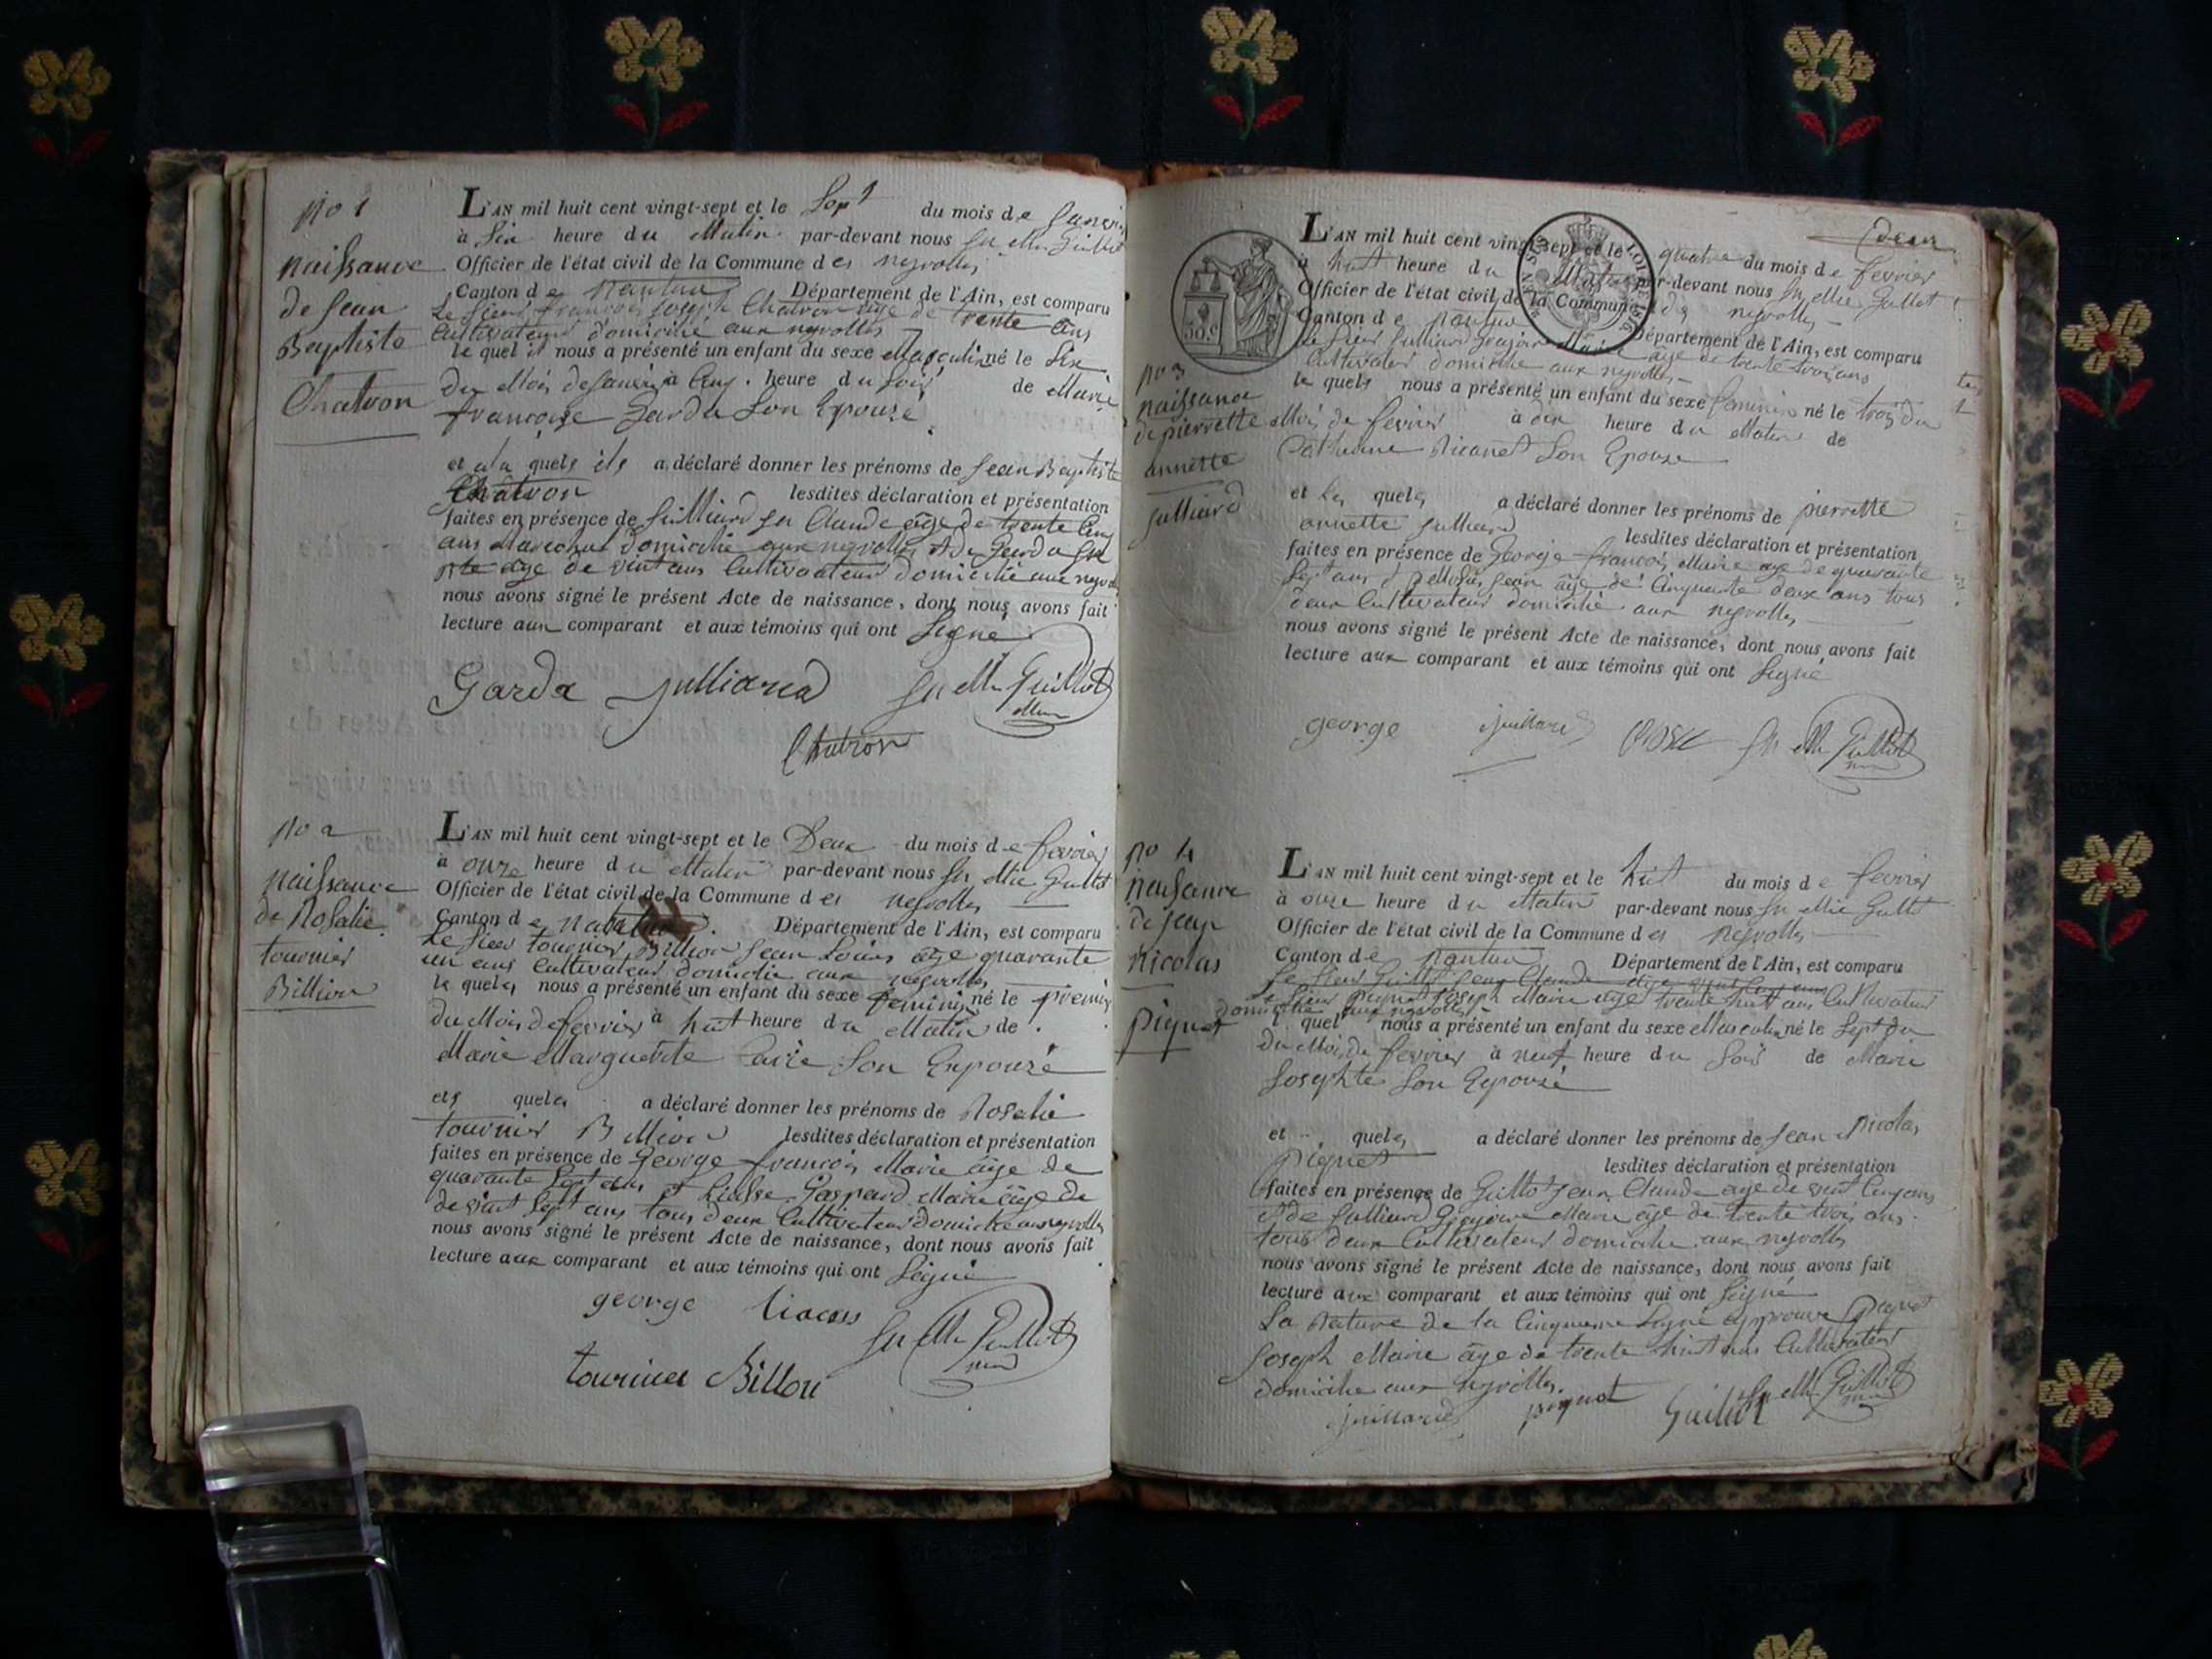 No 1
naissance
de Jean
Baptiste
Chatron
L'AN mil huit cent vingt-sept et le Sept du mois de Janvier
à Six heure du Matin par-devant nous
Officier de l'état civil de la Commune des neyrolles
Canton de Nantua Département de l'Ain, est comparu
Le Sieur françois Joseph Chatron âge de trente ans
Cultivateur domicilié aux neyrolles
le quel il nous a présenté un enfant du sexe Masculin né le Six
du Mois de Janvier à Cinq heure du Soir de Marie
françoise Garda Son Epouse
et quels ils a déclaré donner les prénoms de Jean Baptiste
Chatron lesdites déclaration et présentation
faites en présence de Julliard Claude âge de trente Cinq
ans Marechal domicilié aux neyrolles et de Garda
âge de vint ans Cultivateur domicilié aux neyrolles
nous avons signé le présent Acte de naissance, dont nous avons fait
lecture aux comparant et aux témoins qui ont Signé
Garda Julliard Guillot
Chatron
No 2
naissance
de Rosalie
tournier
Billion
L'AN mil huit cent vingt-sept et le Deux du mois de fevrier
à onze heure du Matin par-devant nous
Officier de l'état civil de la Commune des neyrolles
Canton de Nantua. Département de l'Ain, est comparu
Le Sieur tournier Billion Jean Louis âge quarante
un ans Cultivateur domicilie aux neyrolles
le quels nous a présenté un enfant du sexe feminin né le premier
du Mois de fevrier à huit heure du Matin de
Marie Marguerite Son Epouse
quels a déclaré donner les prénoms de Rosalie
tournier Billion lesdites déclaration et présentation
faites en présence de George francois Marie âge de
quarante Sept ans et Gaspard Marie âge de
de vint Sept ans tous deux Cultivateur domicilie aux neyrolles
nous avons signé le présent Acte de naissance, dont nous avons fait
lecture aux comparant et aux témoins qui ont Signé
george Guillot
tournier Billon
L'AN mil huit cent vingt-sept et le quatre du mois de fevrier
à huit heure du Matin par-devant nous
Officier de l'état civil de la Commune des neyrolles
Canton de Nantua Département de l'Ain, est comparu
Le Sieur Julliard Marie âge de trente trois ans
Cultivateur domicilie aux neyrolles
le quels nous a présenté un enfant du sexe feminin né le trois du
Mois de fevrier à dix heure du Matin de
Catherine Son Epouse
No 3
naissance
de pierrette
annette
Julliard
et quels a déclaré donner les prénoms de pierrette
annette Julliard lesdites déclaration et présentation
faites en présence de George francois Marie âge de quarante
Sept ans et Jean âge de Cinquante deux ans tous
deux Cultivateur domicilie aux neyrolles
nous avons signé le présent Acte de naissance, dont nous avons fait
lecture aux comparant et aux témoins qui ont Signé
george juillard Guillot
No 4
naisance
de jean
nicolas
piquet
L'AN mil huit cent vingt-sept et le huit du mois de fevrier
à onze heure du Matin par-devant nous
Officier de l'état civil de la Commune des neyrolles
Canton de Nantua Département de l'Ain, est comparu
Le Sieur Guillot Jean Claude âge vint Cinq ans
Le Sieur piquet Joseph Marie âge trente huit ans Cultivateur
domicilie aux neyrolles
l quel nous a présenté un enfant du sexe Masculin né le Sept du
du Mois de fevrier à neuf heure du Soir de Marie
Josephte Son Epouse
et quels a déclaré donner les prénoms de Jean Nicolas
piquet lesdites déclaration et présentation
faites en présence de Guillot Jean Claude âge de vint Cinq ans
et de Julliard Marie âge de trente trois ans
tous deux Cultivateur domicilie aux neyrolles
nous avons signé le présent Acte de naissance, dont nous avons fait
lecture aux comparant et aux témoins qui ont Signé
La Rature de la Cinquieme Ligne approuvé piquet
Joseph Marie âge de trente huit ans Cultivateur
domicilie aux neyrolles.
juillard piquet Guillot Guillot